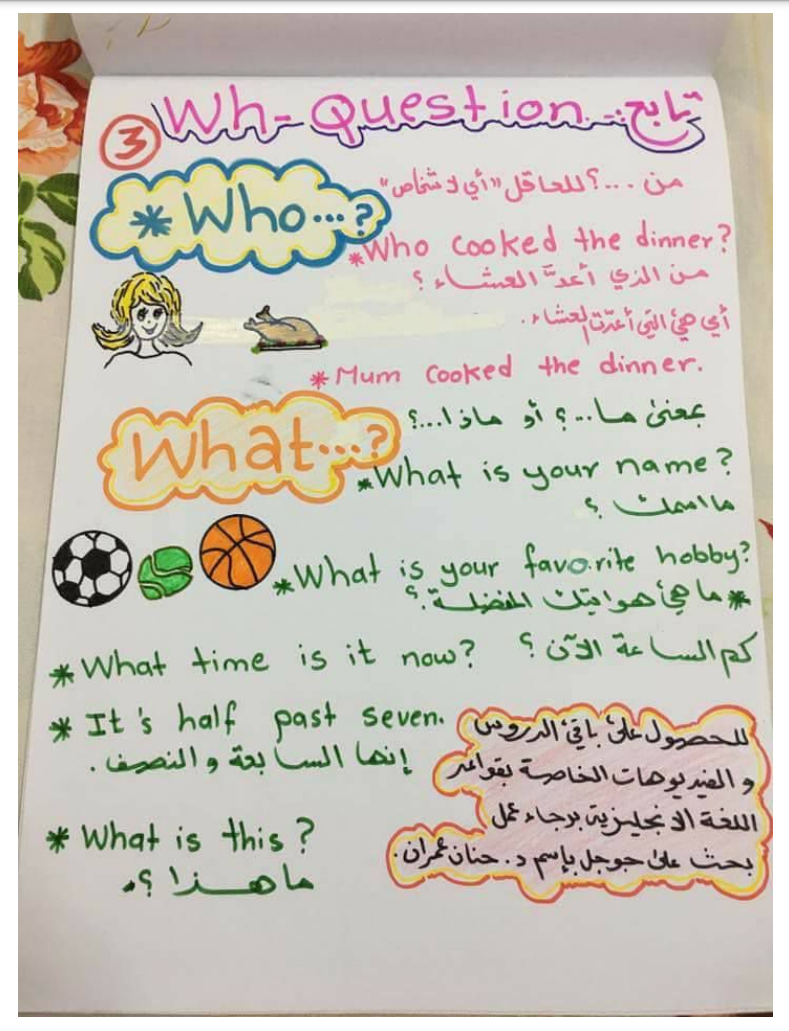 Wh-Question.. تابع..
3
* Who...?
من ...؟ للعاقل "أي لاشخاص"
* Who cooked the dinner?
من الذي أعدّ العشاء ؟
أي هي التي أعدّت العشاء.
* Mum cooked the dinner.
What...?
بمعنى ما...؟ أو ماذا...؟
* What is your name?
ما اسمك ؟
* What is your favorite hobby?
* ما هي هوايتك المفضلة ؟
* What time is it now? كم الساعة الآن ؟
* It's half past seven.
إنها السابعة و النصف .
* What is this?
ما هذا ؟
للحصول على باقي الدروس
و الفيديوهات الخاصة بقواعد
اللغة الانجليزية برجاء عمل
بحث على جوجل بإسم د. حنان عمران.